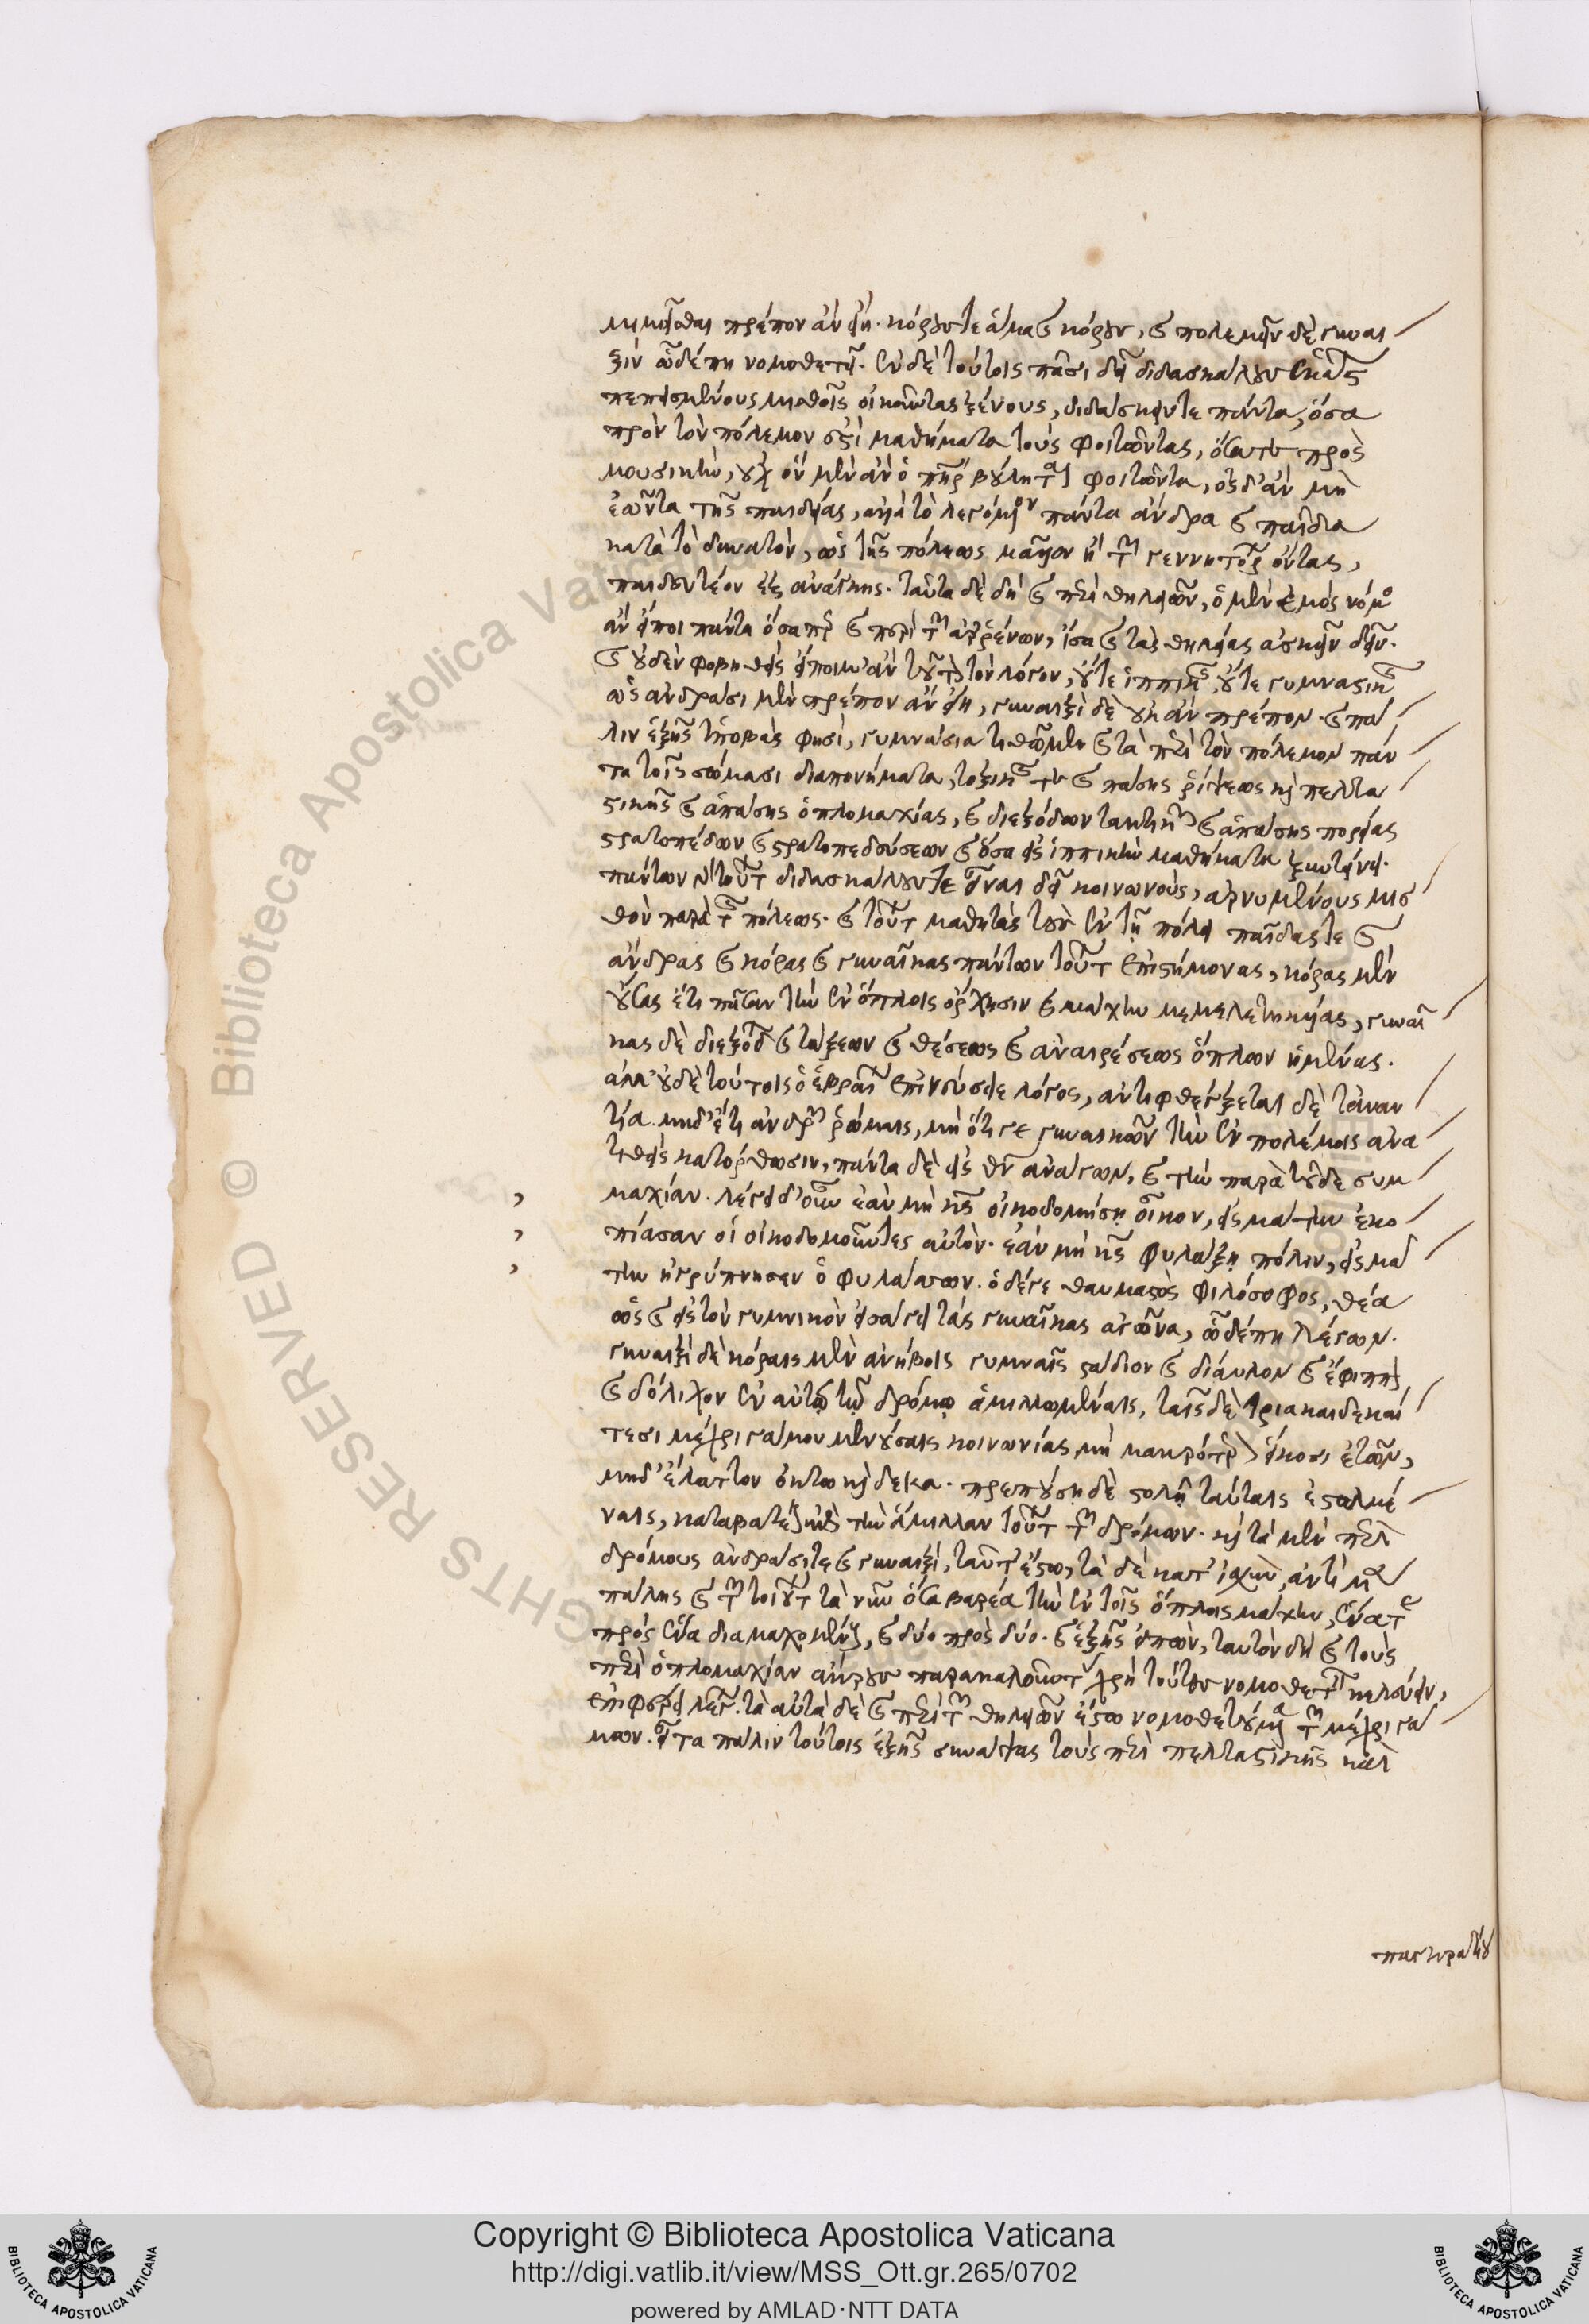 μιμεῖσθαι πρέπον ἂν εἴη. κόρους τε ἅμα καὶ κόρας, καὶ πολεμεῖν δὲ γυναι
ξὶν ὧδέ πῃ νομοθετεῖ. ἐν δὲ τούτοις πᾶσι διδασκάλους ἑκάστων
πεπεισμένους μισθοῖς οἰκοῦντας ξένους, διδάσκειν τε πάντα, ὅσα
πρὸς τὸν πόλεμον ἐστὶ μαθήματα τοὺς φοιτῶντας, ὅσα τε πρὸς
μουσικὴν, οὐχ ὃν μὲν ἂν ὁ πατὴρ βούληται φοιτῶντα, ὃν δ' ἂν μὴ
ἐῶντα τῆς παιδείας, ἀλλὰ τὸ λεγόμενον πάντα ἄνδρα καὶ παῖδα
κατὰ τὸ δυνατὸν, ὡς τῆς πόλεως μᾶλλον ἢ τῶν γεννητόρων ὄντας,
παιδευτέον ἐξ ἀνάγκης. ταῦτα δὲ δὴ καὶ περὶ θηλειῶν, ὁ μὲν ἐμὸς νόμος
ἂν εἴποι πάντα ὅσα περ καὶ περὶ τῶν ἀρρένων, ἴσα καὶ τὰς θηλείας ἀσκεῖν δεῖν.
καὶ οὐδὲν φοβηθεὶς εἴποιμ' ἂν τοῦτον τὸν λόγον, οὔτε ἱππικῆς, οὔτε γυμναστικῆς
ὡς ἀνδράσι μὲν πρέπον ἂν εἴη, γυναιξὶ δὲ οὐκ ἂν πρέπον. καὶ πά
λιν ἑξῆς ὑποβάς φησι, γυμνάσια τιθῶμεν καὶ τὰ περὶ τὸν πόλεμον πάν
τα τοῖς σώμασι διαπονήματα, τοξικῆς τε καὶ πάσης ῥίψεως καὶ πελτα
στικῆς καὶ ἁπάσης ὁπλομαχίας, καὶ διεξόδων τακτικῶν καὶ ἁπάσης πορείας
στρατοπέδων καὶ στρατοπεδεύσεων καὶ ὅσα εἰς ἱππικὴν μαθήματα ξυντείνει.
πάντων γὰρ τούτων διδασκάλους τε εἶναι δεῖ κοινωνοὺς, ἀρνυμένους μισ
θὸν παρὰ τῆς πόλεως. καὶ τούτων μαθητὰς τοὺς ἐν τῇ πόλει παῖδας τε καὶ
ἄνδρας καὶ κόρας καὶ γυναῖκας πάντων τούτων ἐπιστήμονας, κόρας μὲν
οὔσας ἔτι πᾶσαν τὴν ἐν ὅπλοις ὄρχησιν καὶ μάχην μεμελετηκυίας, γυναῖ
κας δὲ διεξόδων καὶ τάξεων καὶ θέσεως καὶ ἀναιρέσεως ὅπλων ἡμμένας.
ἀλλ' οὐδὲ τούτοις ὁ ἑβραίων ἐπινεύσειε λόγος, ἀντιφθέγξεται δὲ τἀναν
τία. μηδ' ἔτι ἀνδρῶν ῥώμαις, μὴ ὅτι γε γυναικῶν τὴν ἐν πολέμοις ἀνα
τιθεὶς κατόρθωσιν, πάντα δὲ εἰς θεὸν ἀνάγων, καὶ τὴν παρὰ τοῦδε συμ
μαχίαν. λέγει δ' οὖν ἐὰν μὴ κύριος οἰκοδομήσῃ οἶκον, εἰς μάτην ἐκο
πίασαν οἱ οἰκοδομοῦντες αὐτόν. ἐὰν μὴ κύριος φυλάξῃ πόλιν, εἰς μά
την ἠγρύπνησεν ὁ φυλάσσων. ὁ δέ γε θαυμαστὸς φιλόσοφος, θέα
ὡς καὶ εἰς τὸν γυμνικὸν εἰσάγει τὰς γυναῖκας ἀγῶνα, ὧδέ πῃ λέγων.
γυναιξὶ δὲ κόραις μὲν ἀνήβοις γυμναῖς στάδιον καὶ δίαυλον καὶ ἐφίππιον
καὶ δόλιχον ἐν αὐτῷ τῷ δρόμῳ ἁμιλλωμέναις, ταῖς δὲ τριακαιδεκαέ
τεσι μέχρι γάμου μενούσαις κοινωνίας μὴ μακρότερον εἴκοσι ἐτῶν,
μηδ' ἔλαττον ὀκτὼ καὶ δέκα. πρεπούσῃ δὲ στολῇ ταύταις ἐσταλμέ
ναις, καταβατέον ἐπὶ τὴν ἅμιλλαν τούτων τῶν δρόμων. καὶ τὰ μὲν περὶ
δρόμους ἀνδράσι τε καὶ γυναιξὶ, ταῦτ' ἔστω, τὰ δὲ κατ' ἰσχὺν, ἀντὶ μὲν
πάλης καὶ τῶν τοιούτων τὰ νῦν ὅσα βαρέα τὴν ἐν τοῖς ὅπλοις μάχην, ἕνα τε
πρὸς ἕνα διαμαχομένους, καὶ δύο πρὸς δύο. καὶ ἑξῆς εἰπὼν, ταυτὸν δὴ καὶ τοὺς
περὶ ὁπλομαχίαν ἄκρους παρακαλοῦντας χρὴ τούτους νομοθετεῖν κελεύειν,
ἐπιφέρει λέγων. τὰ αὐτὰ δὲ καὶ περὶ τῶν θηλειῶν ἔστω νομοθετούμενα τῶν μέχρι γά
μων. εἶτα πάλιν τούτοις ἑξῆς συνάψας τοὺς περὶ πελταστικῆς καὶ
παγκρατίου